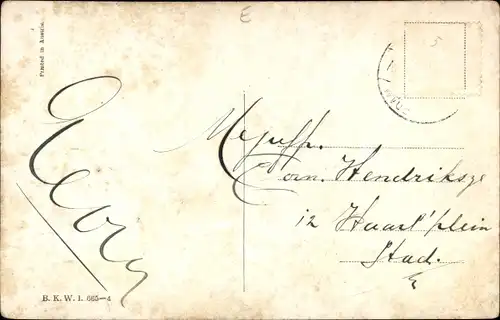 E
5
Printed in Austria.
Mejuffr.
Corn. Hendriksze
12 Haarl'plein
Stad.
B. K. W. I. 665-4